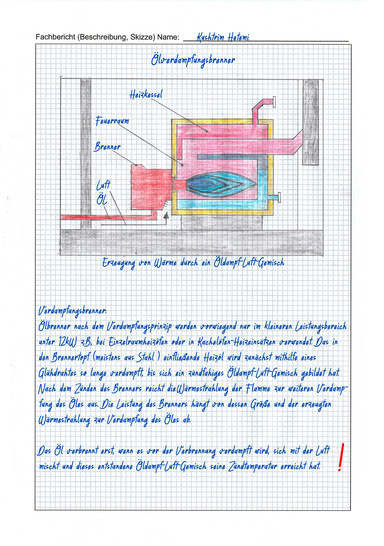 Fachbericht (Beschreibung, Skizze) Name: Kushtrim Hetemi
Ölverdampfungsbrenner
Heizkessel
Feuerraum
Brenner
Luft
Öl
Erzeugung von Wärme durch ein Öldampf-Luft-Gemisch
Verdampfungsbrenner:
Ölbrenner nach dem Verdampfungsprinzip werden vorwiegend nur im kleineren Leistungsbereich
unter 12kW z.B. bei Einzelraumheizöfen oder in Kachelofen-Heizeinsätzen verwendet. Das in
den Brennertopf (meistens aus Stahl ) einfließende Heizöl wird zunächst mithilfe eines
Glühdrahtes so lange verdampft, bis sich ein zündfähiges Öldampf-Luft-Gemisch gebildet hat.
Nach dem Zünden des Brenners reicht die Wärmestrahlung der Flamme zur weiteren Verdamp-
fung des Öles aus. Die Leistung des Brenners hängt von dessen Größe und der erzeugten
Wärmestrahlung zur Verdampfung des Öles ab.
Das Öl verbrennt erst, wenn es vor der Verbrennung verdampft wird, sich mit der Luft
mischt und dieses entstandene Öldampf-Luft-Gemisch seine Zündtemperatur erreicht hat. !